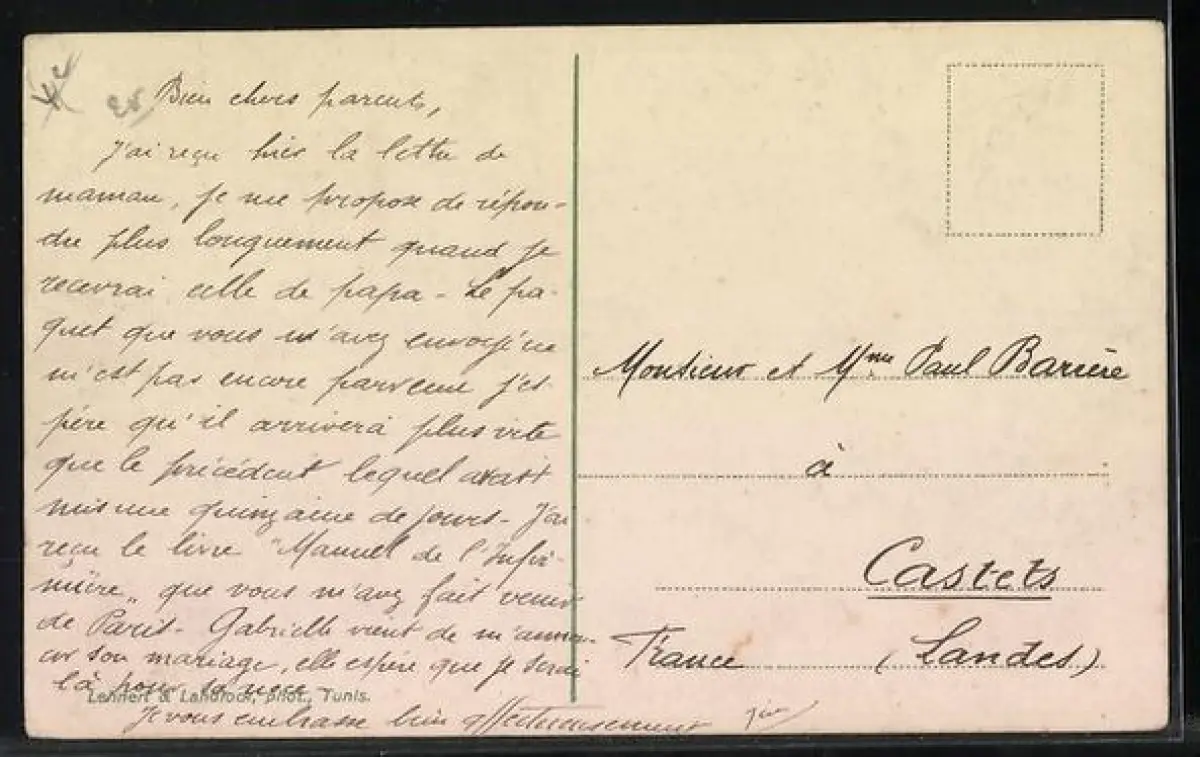 Bien chers parents,
J'ai reçu hier la lettre de
maman, je me propose de répon-
dre plus longuement quand je
recevrai celle de papa - Le pa-
quet que vous m'avez envoyé ne
m'est pas encore parvenu j'es-
père qu'il arrivera plus vite
que le précédent lequel avait
mis une quinzaine de jours - J'ai
reçu le livre "Manuel de l'Infir-
mière" que vous m'avez fait venir
de Paris - Gabrielle vient de m'annon-
cer son mariage, elle espère que je serai
là pour la noce -
Lehnert & Landrock, phot., Tunis.
Je vous embrasse bien affectueusement
Monsieur et Mme Paul Barrière
à
Castets
France (Landes)